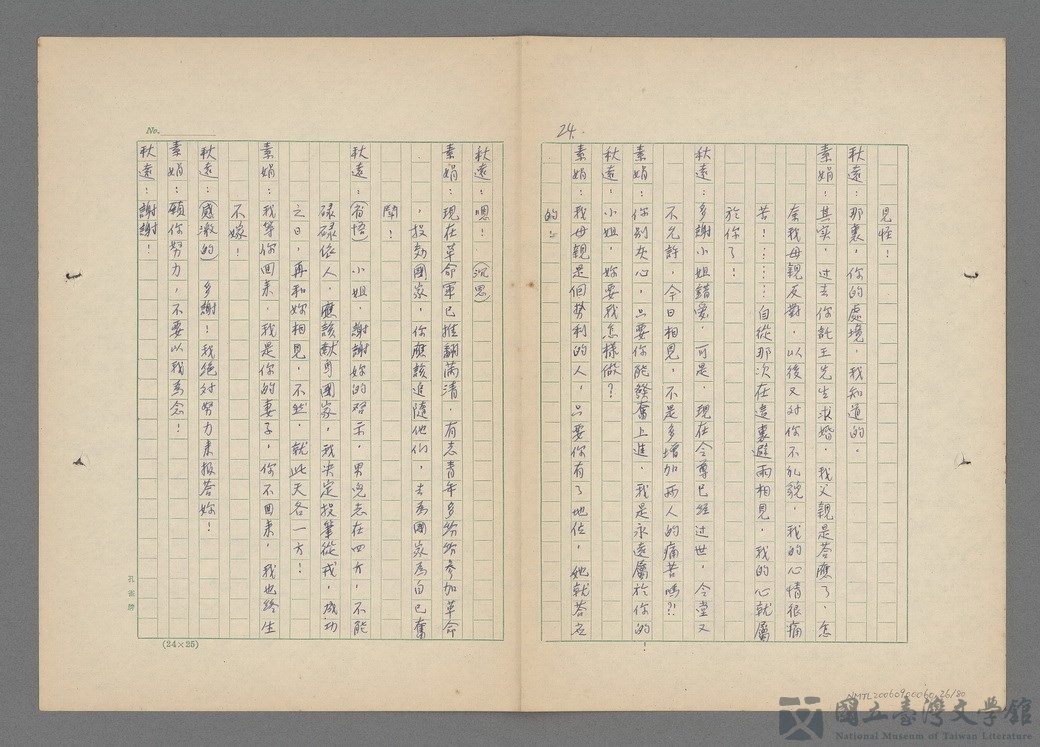 24.
見怪！
秋遠：那裏，你的處境，我知道的。
素娟：其实，过去你託王先生求婚，我父親是荅應了，怎
奈我母親反對，以後又对你不礼貌，我的心情很痛
苦！……自從那次在這裏避雨相見，我的心就屬
於你了！
秋遠：多謝小姐錯愛，可是，現在令尊已經过世，令堂又
不允許，今日相見，不是多增加兩人的痛苦嗎?!
素娟：你別灰心，只要你能發奮上進，我是永遠屬於你的！
秋遠：小姐，妳要我怎樣做？
素娟：我母親是個势利的人，只要你有了地位，她就荅应
的！
秋遠：嗯！（沉思）
素娟：現在革命軍已推翻满清，有志青年多紛紛参加革命
，投効國家，你應該追隨他们，去為國家為自己奮
鬪！
秋遠：（省悟）小姐，謝謝妳的啓示，男兒志在四方，不能
碌碌依人，應該献身國家，我决定投筆從戎，成功
之日，再和妳相見，不然，就此天各一方！
素娟：我等你回来，我是你的妻子，你不回來，我也終生
不嫁！
秋遠：（感激的）多謝！我絕对努力来报荅妳！
素娟：願你努力，不要以我為念！
秋遠：謝謝！
No.
孔雀牌
(24×25)
NMTL20060900060-26/80
國立臺灣文學館
National Museum of Taiwan Literature